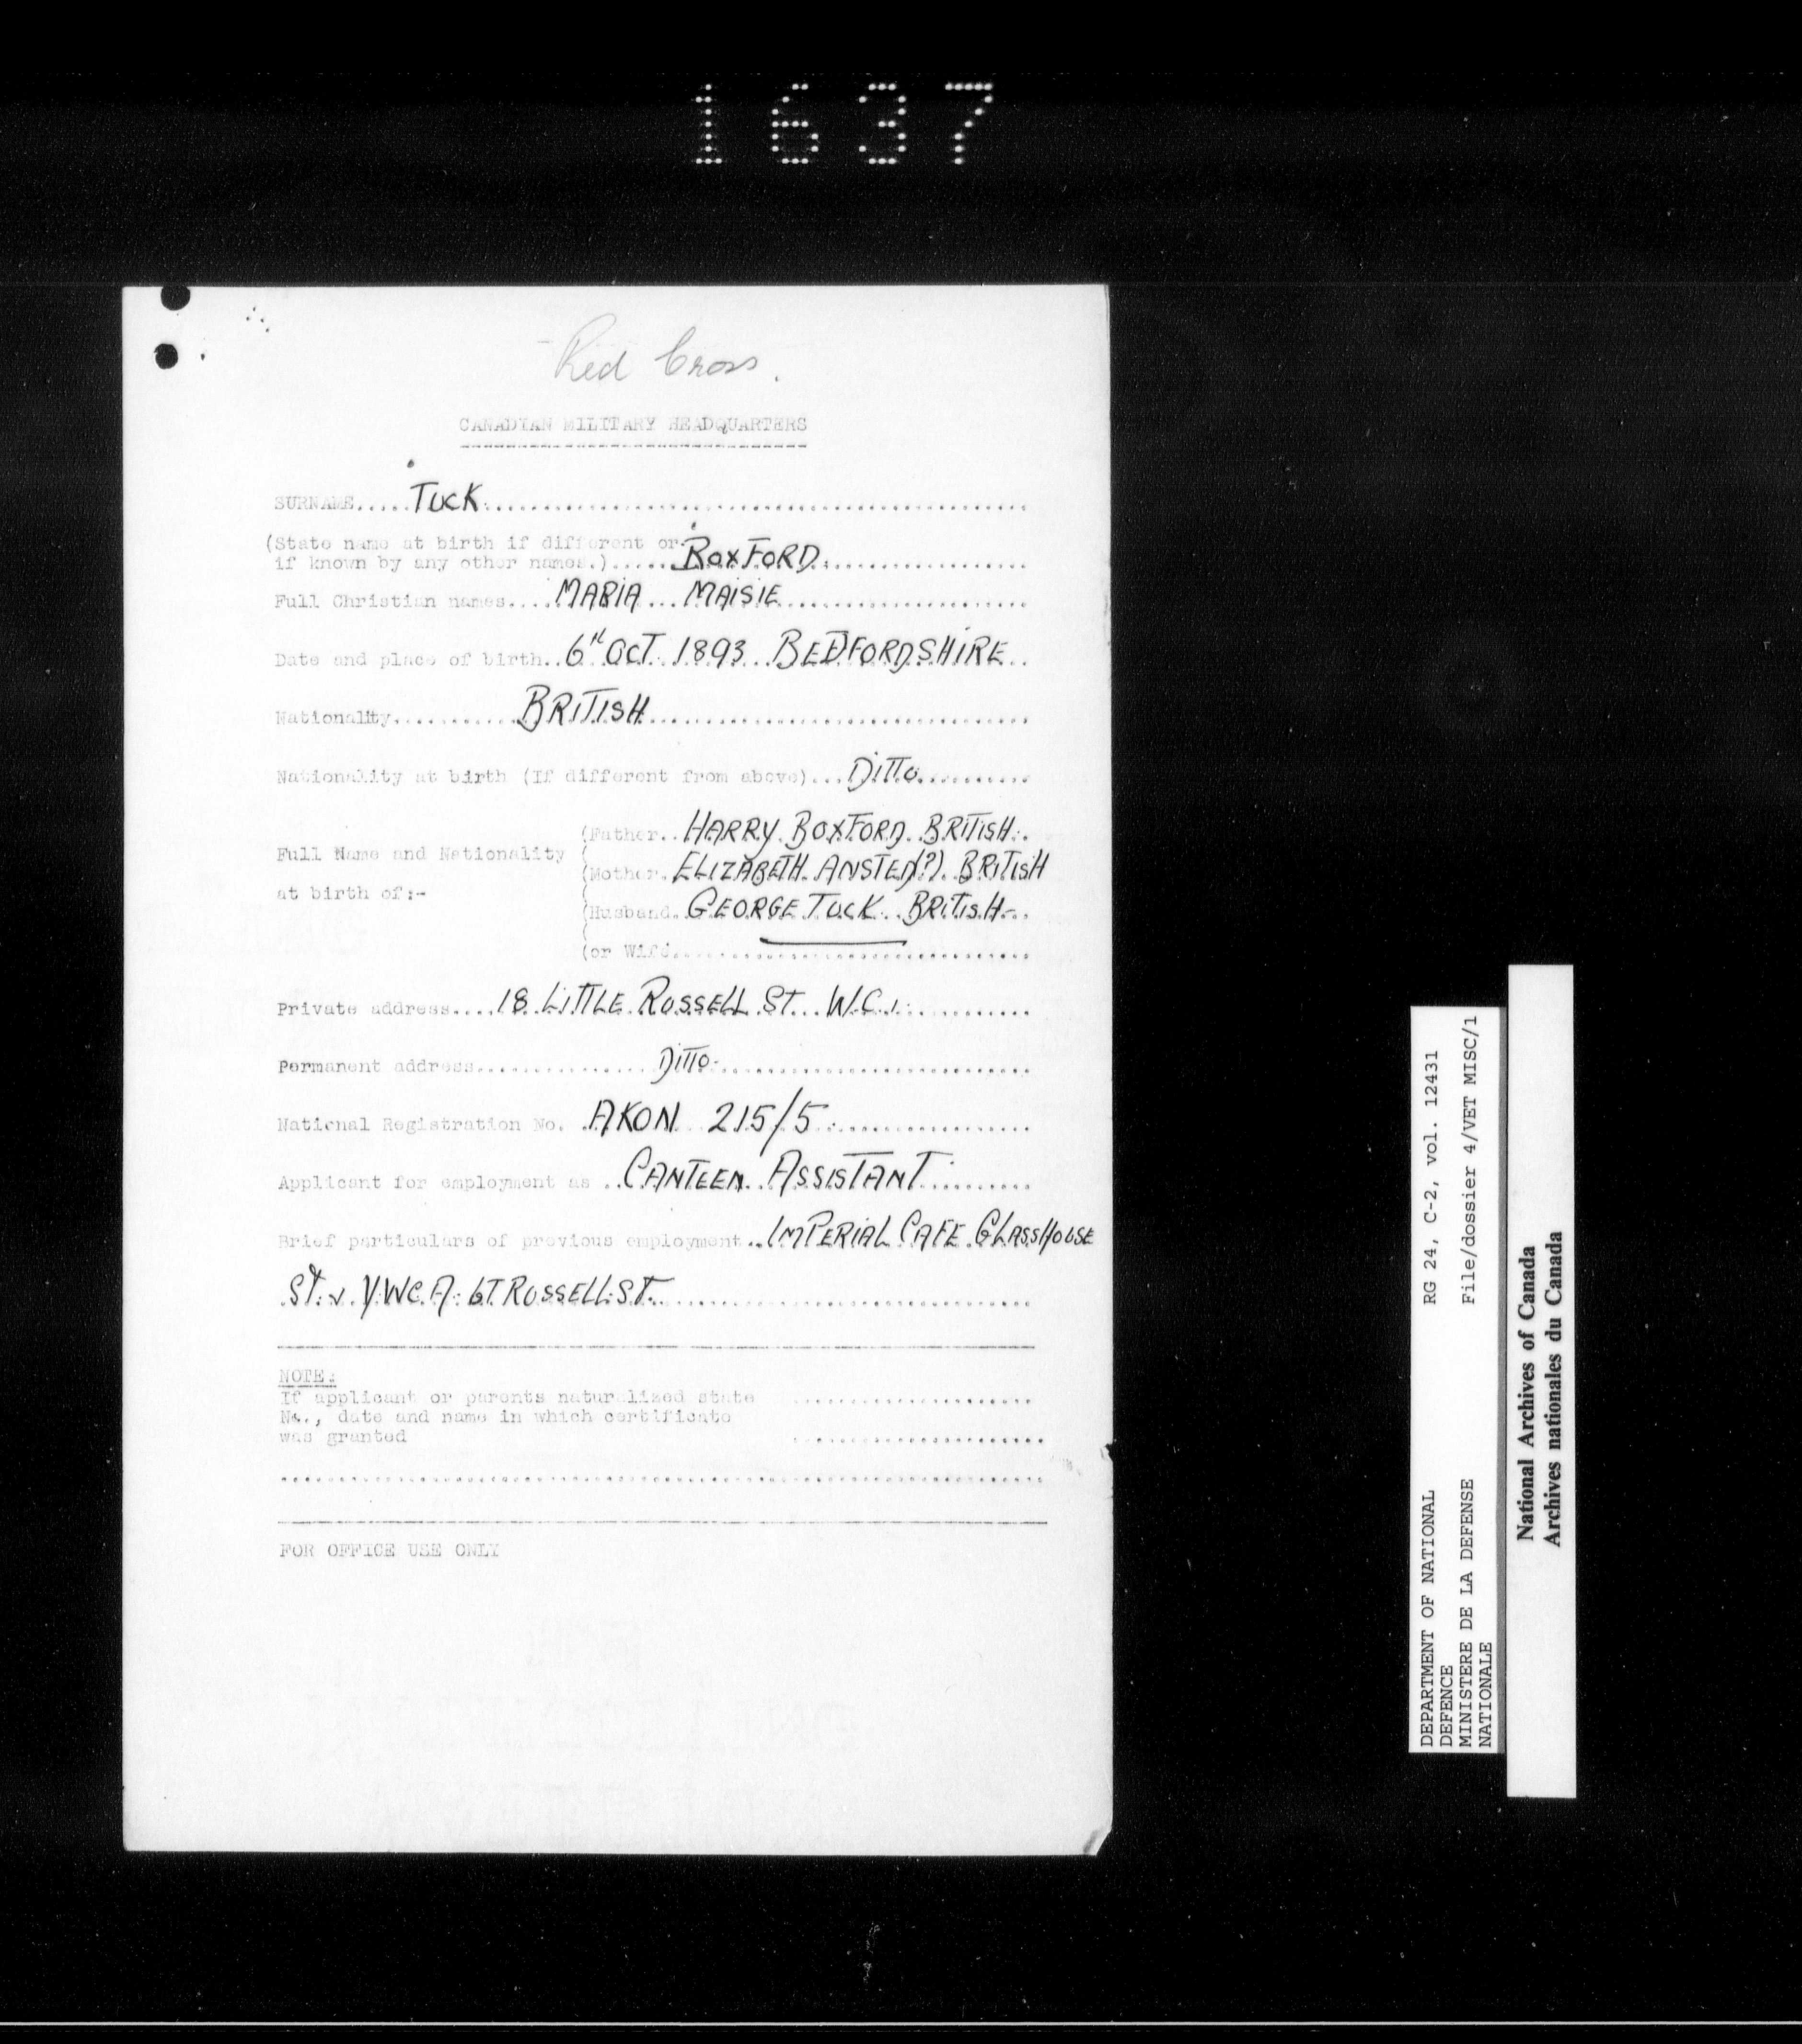 1637
Red Cross.
CANADIAN MILITARY HEADQUARTERS
SURNAME.....TUCK
(State name at birth if different or
if known by any other names.).....BOXFORD
Full Christian names....MARIA MAISIE
Date and place of birth..6TH OCT. 1893 BEDFORDSHIRE
Nationality..........BRITISH
Nationality at birth (If different from above)...DITTO
(Father..HARRY BOXFORD BRITISH.
Full Name and Nationality (
(Mother.ELIZABETH ANSTED(?). BRITISH
at birth of:- (
(Husband.GEORGE TUCK BRITISH
(
(or Wife
Private address....18 LITTLE RUSSELL ST. W.C.1.
Permanent address..........DITTO
National Registration No. AKON 215/5
Applicant for employment as ..CANTEEN ASSISTANT
Brief particulars of previous employment..IMPERIAL CAFE GLASSHOUSE
ST. Y.W.C.A. GT RUSSELL ST.
NOTE:
If applicant or parents naturalized state
No., date and name in which certificate
was granted
FOR OFFICE USE ONLY
DEPARTMENT OF NATIONAL
DEFENCE
MINISTERE DE LA DEFENSE
NATIONALE
RG 24, C-2, vol. 12431
File/dossier 4/VET MISC/1
National Archives of Canada
Archives nationales du Canada